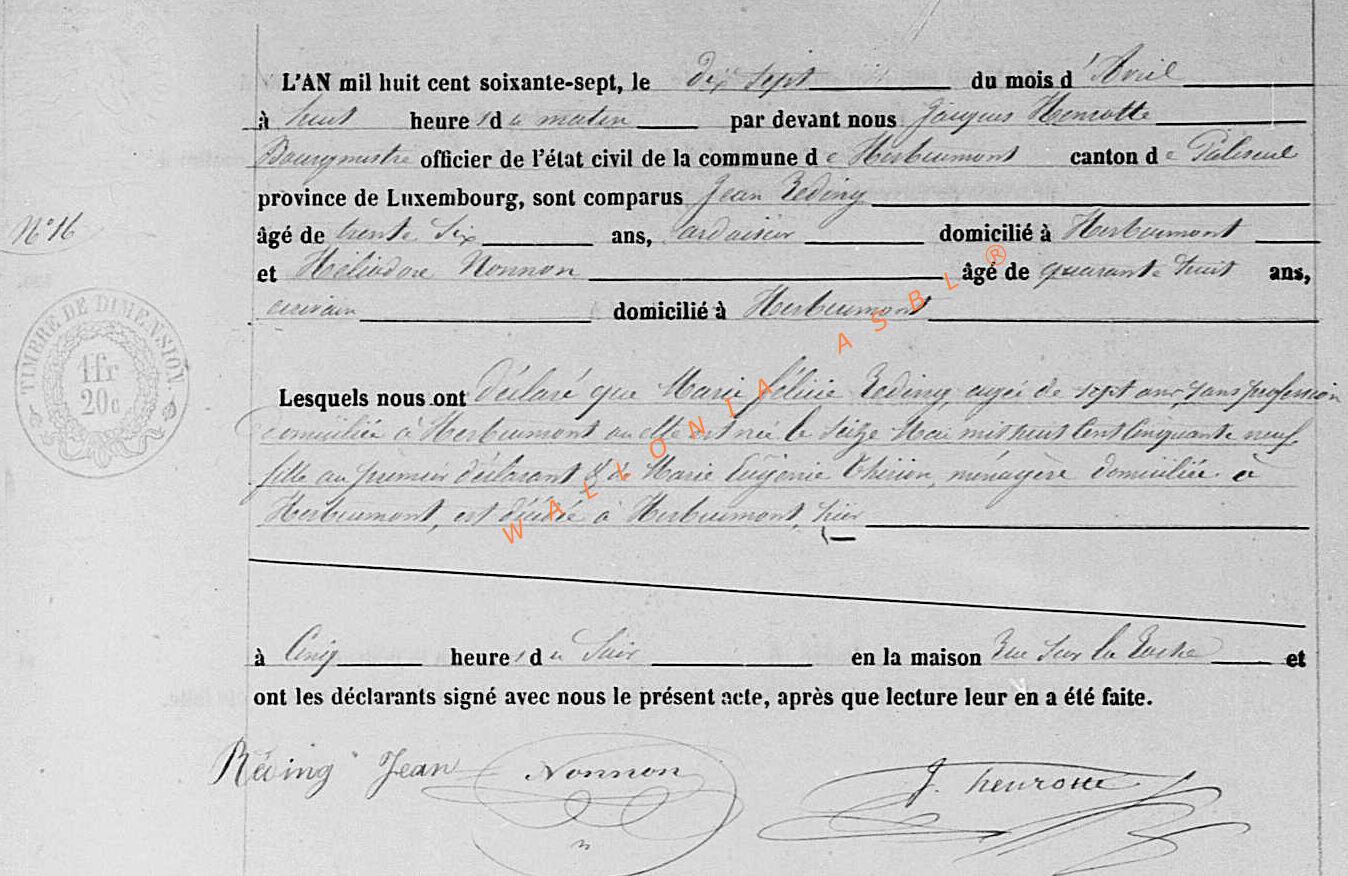 L'AN mil huit cent soixante-sept, le dix sept du mois d'Avril
à huit heures du matin par devant nous Jacques Henrotte
Bourgmestre officier de l'état civil de la commune de Herbeumont canton de Paliseul
province de Luxembourg, sont comparus Jean Reding
N° 16
âgé de trente six ans, ardoisier domicilié à Herbeumont
et Héliodore Nonnon âgé de quarante huit ans,
écrivain domicilié à Herbeumont
TIMBRE DE DIMENSION
1fr
20c
Lesquels nous ont déclaré que Marie félicie Reding, agée de sept ans, sans profession
domiciliée à Herbeumont où elle est née le seize Mai mil huit cent cinquante neuf
fille au premier déclarant & de Marie Eugénie Thirion, ménagère domiciliée à
Herbeumont, est décédée à Herbeumont, hier
à Cinq heures du Soir en la maison Rue Sur la Roche et
ont les déclarants signé avec nous le présent acte, après que lecture leur en a été faite.
Réding Jean Nonnon J. henrotte
WALLONIA ASBL ®